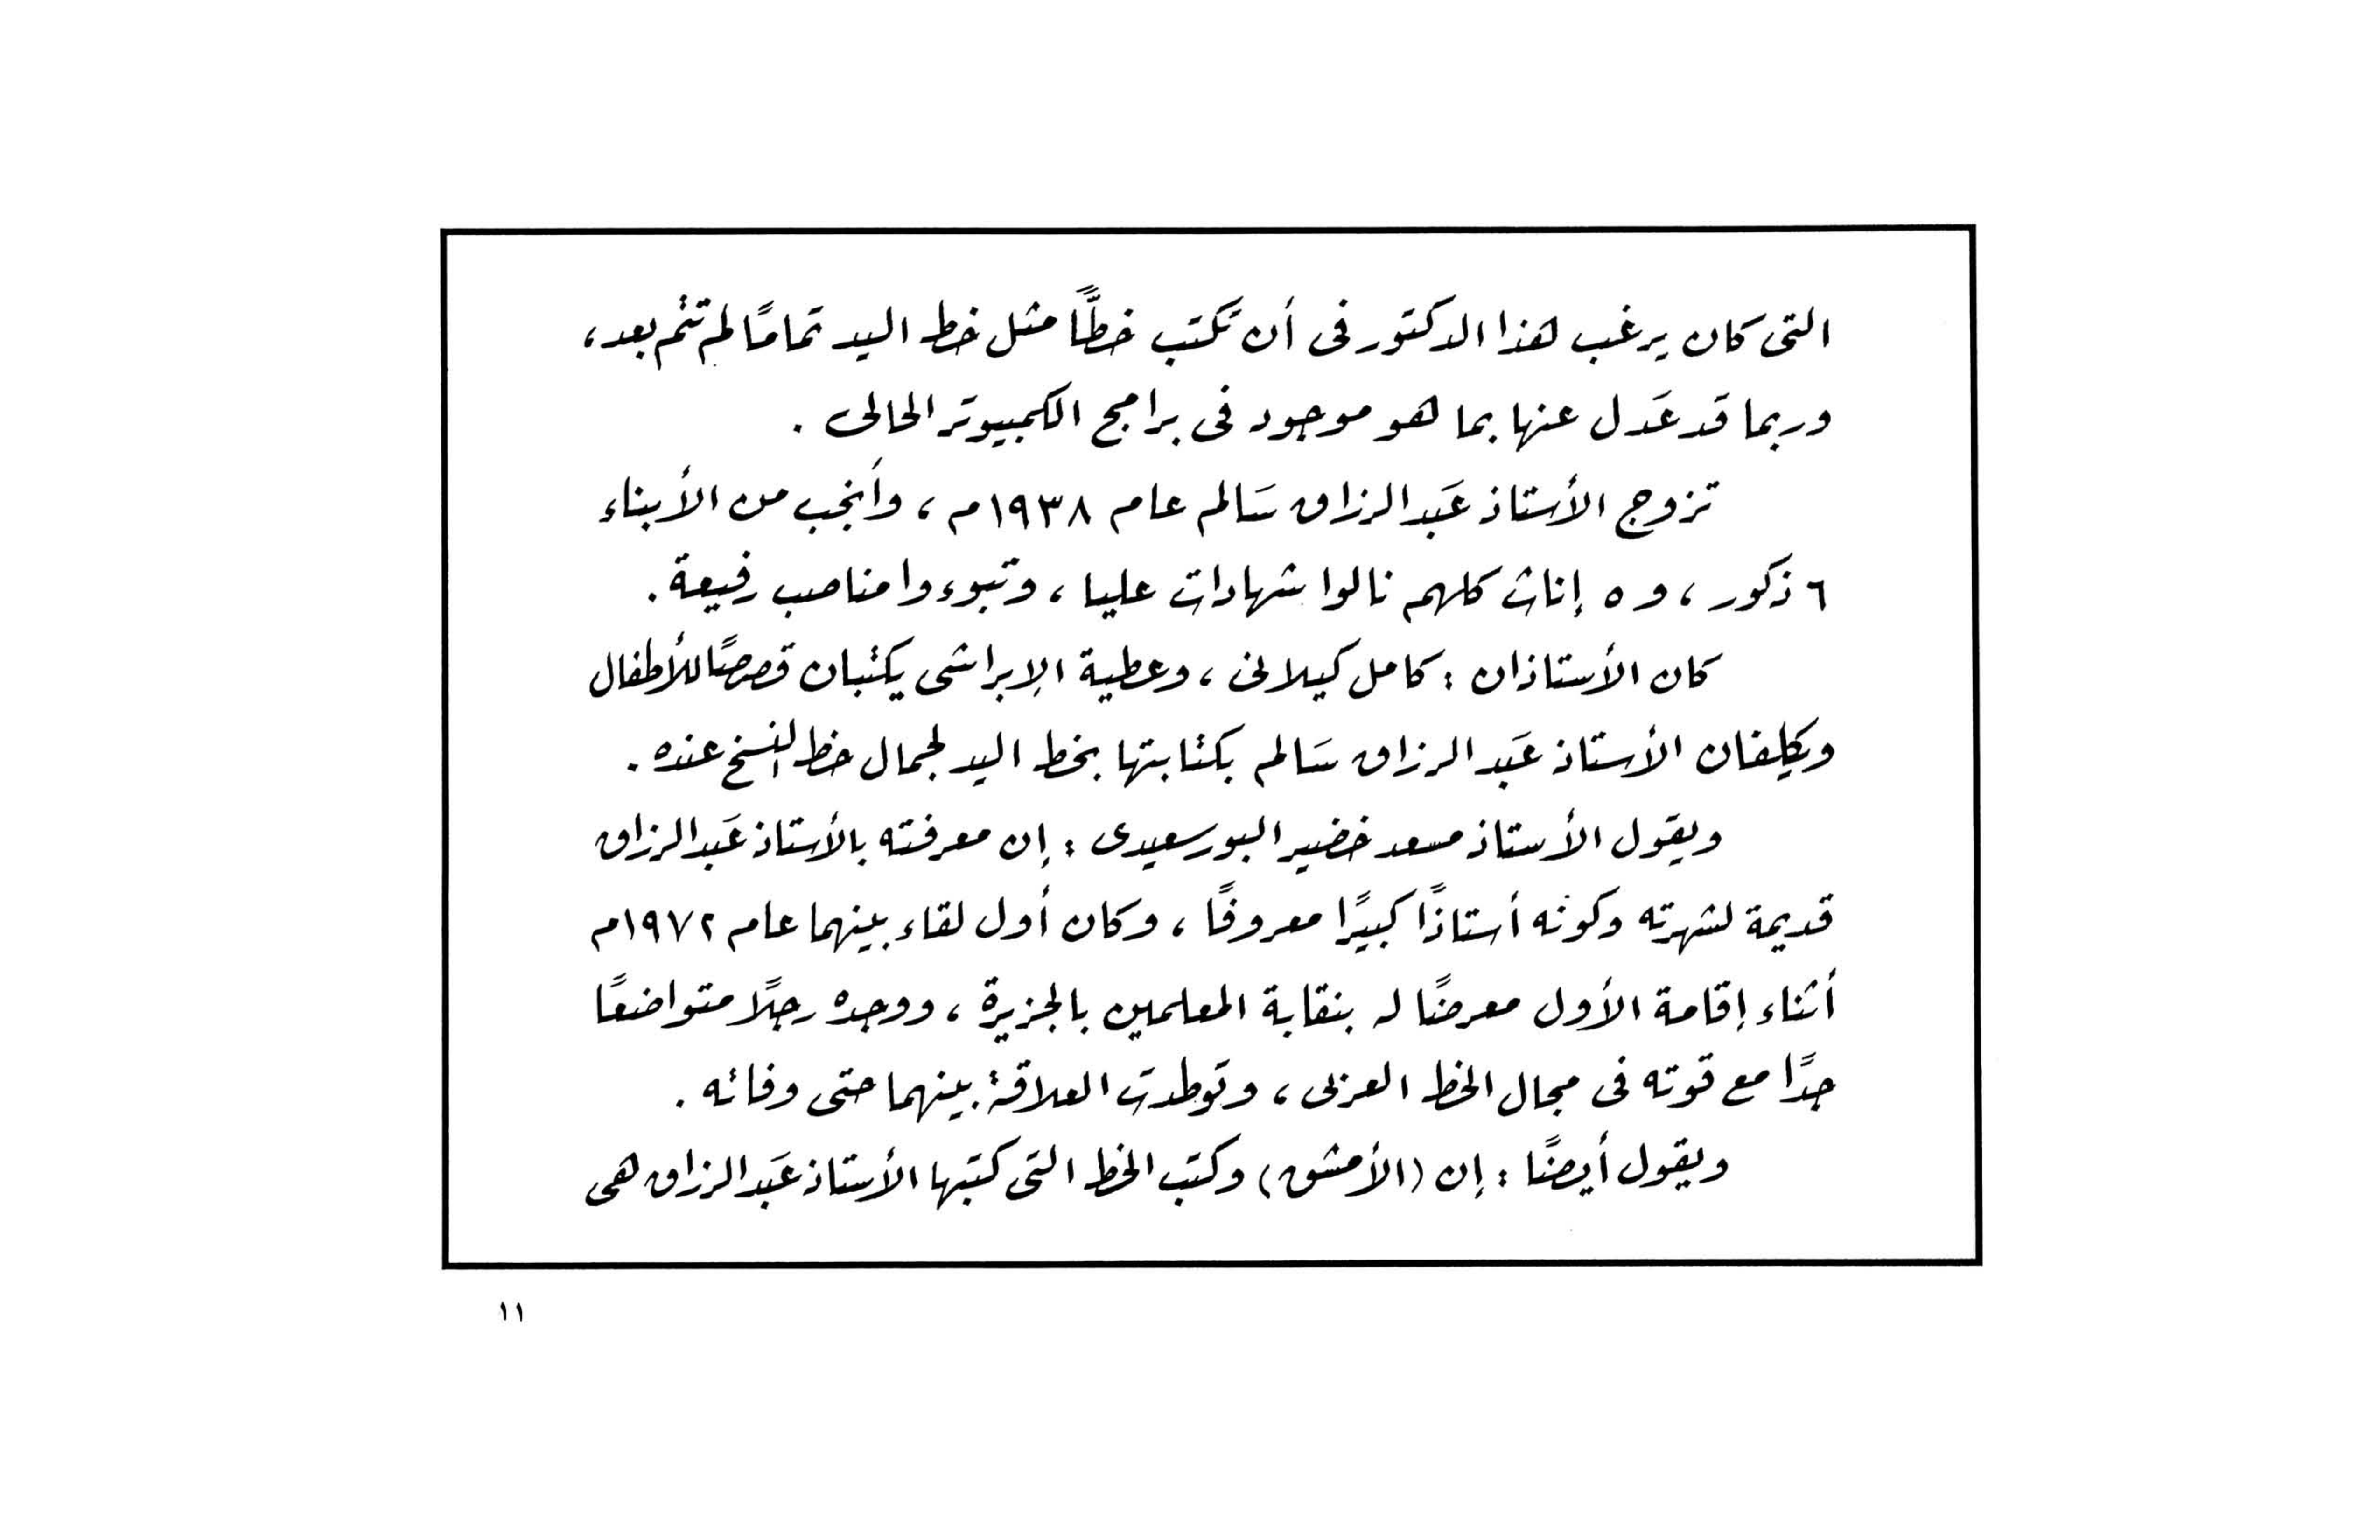 التى كان يرغب هذا الدكتور فى أن تكتب خطًّا مثل خط اليد تمامًا لم تتم بعد،
وربما قد عَدل عنها بما هو موجود فى برامج الكمبيوتر الحالى .
تزوج الأستاذ عَبد الرزاق سَالم عام ١٩٣٨م ، وأنجب من الأبناء
٦ ذكور ، و ٥ إناث كلهم نالوا شهادات عليا ، وتبوءوا مناصب رفيعة .
كان الأستاذان : كامل كيلانى ، وعطية الإبراشى يكتبان قصصًا للأطفال
ويكلفان الأستاذ عَبد الرزاق سَالم بكتابتها بخط اليد لجمال خط النسخ عنده .
ويقول الأستاذ مسعد خضير البورسعيدى : إن معرفته بالأستاذ عَبد الرزاق
قديمة لشهرته وكونه أستاذًا كبيرًا معروفًا ، وكان أول لقاء بينهما عام ١٩٧٢م
أثناء إقامة الأول معرضًا له بنقابة المعلمين بالجزيرة ، ووجده رجلًا متواضعًا
جدًا مع قوته فى مجال الخط العربى ، وتوطدت العلاقة بينهما حتى وفاته .
ويقول أيضًا : إن (الأمشق) وكتب الخط التى كتبها الأستاذ عَبد الرزاق هى
١١